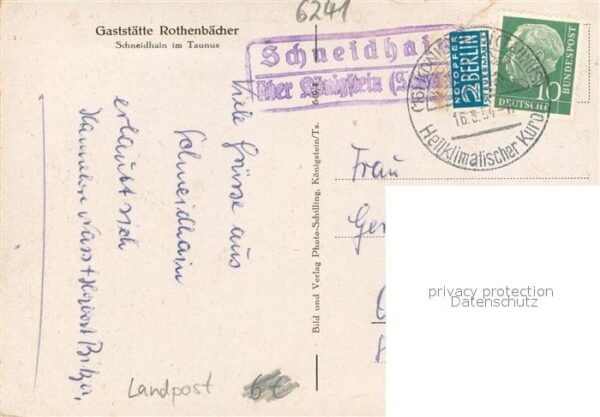 6241
Gaststätte Rothenbächer
Schneidhain im Taunus
Schneidhain
über Königstein (
NOTOPFER
2 BERLIN
STEUERMARKE
DEUTSCHE
BUNDESPOST
10
(16) KÖNIGSTEIN (TAUNUS)
16.8.54
Heilklimatischer Kuror
Viele Grüsse aus
Schneidhain
erlaubt sich
Hannelore Nass + Herbert
Bild und Verlag Photo-Schilling, Königstein/Ts.
Frau
Ger
privacy protection
Datenschutz
Landpost
6€